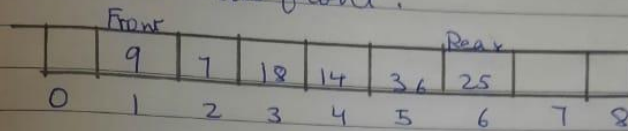 Front Rear
9 7 18 14 36 25
0 1 2 3 4 5 6 7 8